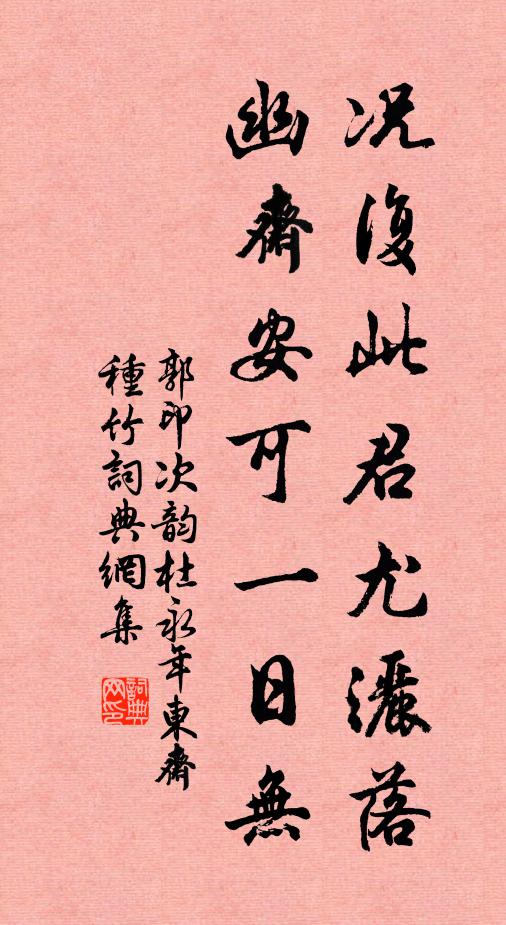 况復此君尤灑落
幽齋安可一日無
郭印次韵杜永年東齋
種竹詞典網集
詞典网印